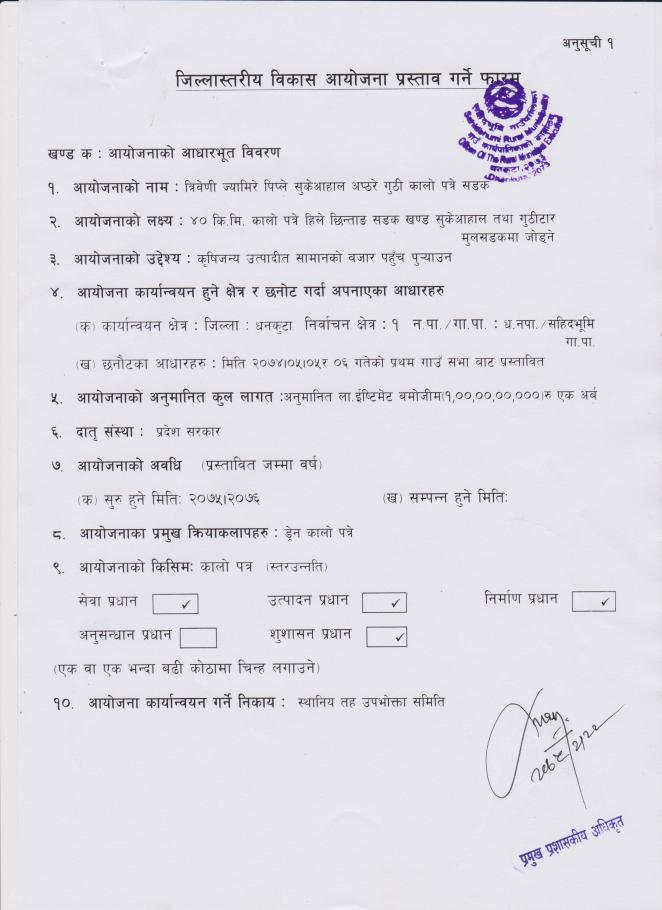 अनुसूची १
जिल्लास्तरीय विकास आयोजना प्रस्ताव गर्ने फारम
सहिदभूमि गाउँपालिका
Sahidbhumi Rural Municipality
गाउँ कार्यपालिकाको कार्यालय
Office Of The Rural Municipal Executive
धनकुटा, २०७३
Dhankuta, 2073
खण्ड क : आयोजनाको आधारभूत विवरण
१. आयोजनाको नाम : त्रिवेणी ज्यामिरे पिप्ले सुकेआहाल अप्ठरे गुठी कालो पत्रे सडक
२. आयोजनाको लक्ष्य : ४० कि.मि. कालो पत्रे हिले छिन्ताङ सडक खण्ड सुकेआहाल तथा गुठीटार
मुलसडकमा जोड्ने
३. आयोजनाको उद्देश्य : कृषिजन्य उत्पादीत सामानको बजार पहुँच पुऱ्याउन
४. आयोजना कार्यान्वयन हुने क्षेत्र र छनोट गर्दा अपनाएका आधारहरु
(क) कार्यान्वयन क्षेत्र : जिल्ला : धनकुटा निर्वाचन क्षेत्र : १ न.पा./गा.पा. : ध.नपा./सहिदभूमि
गा.पा.
(ख) छनौटका आधारहरु : मिति २०७४।०५।०५र ०६ गतेको प्रथम गाउँ सभा बाट प्रस्तावित
५. आयोजनाको अनुमानित कुल लागत :अनुमानित ला.ईष्टिमेट बमोजीम(१,००,००,००,०००)रु एक अर्ब
६. दातृ संस्था : प्रदेश सरकार
७. आयोजनाको अवधि (प्रस्तावित जम्मा वर्ष)
(क) सुरु हुने मिति: २०७५।२०७६ (ख) सम्पन्न हुने मिति:
८. आयोजनाका प्रमुख क्रियाकलापहरु : ड्रेन कालो पत्रे
९. आयोजनाको किसिमः कालो पत्र (स्तरउन्नति)
सेवा प्रधान ✓ उत्पादन प्रधान ✓ निर्माण प्रधान ✓
अनुसन्धान प्रधान शुशासन प्रधान ✓
(एक वा एक भन्दा बढी कोठामा चिन्ह लगाउने)
१०. आयोजना कार्यान्वयन गर्ने निकाय : स्थानिय तह उपभोक्ता समिति
प्रमुख प्रशासकीय अधिकृत